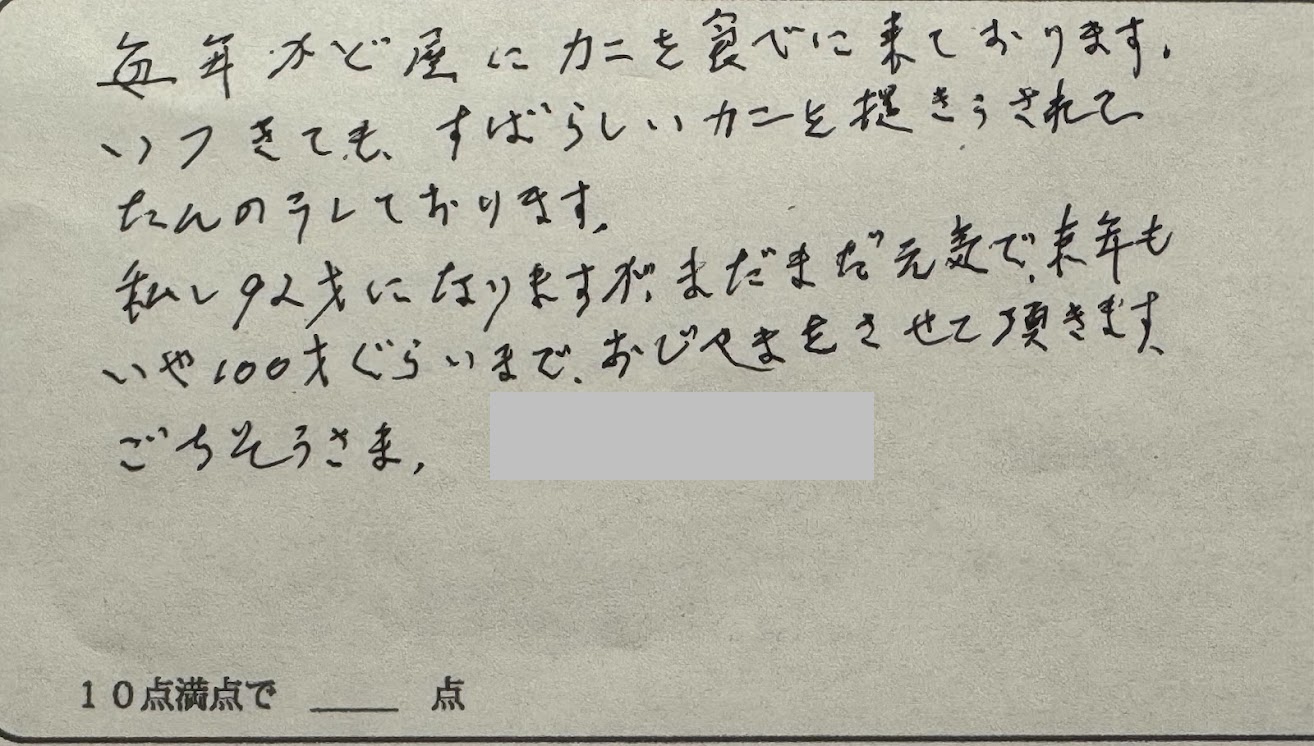 毎年かど屋にカニを食べに来ております。
いつきても、すばらしいカニを提きょうされて
たんのうしております。
私し92才になりますが、まだまだ元気で、来年も
いや100才ぐらいまで、おじゃまをさせて頂きます、
ごちそうさま。
10点満点で ____ 点